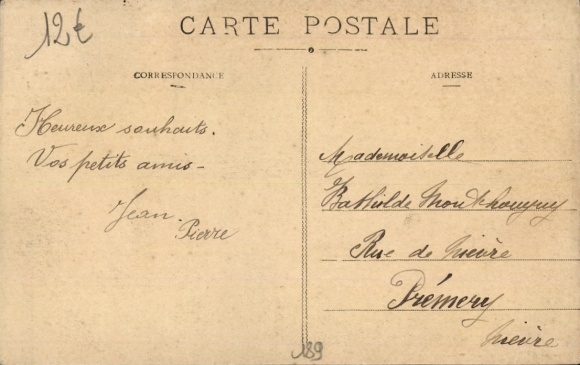 12€
CARTE POSTALE
CORRESPONDANCE
ADRESSE
Heureux souhaits.
Vos petits amis -
Jean.
Pierre
Mademoiselle
Bathilde
Rue de Nièvre
Prémery
Nièvre
189